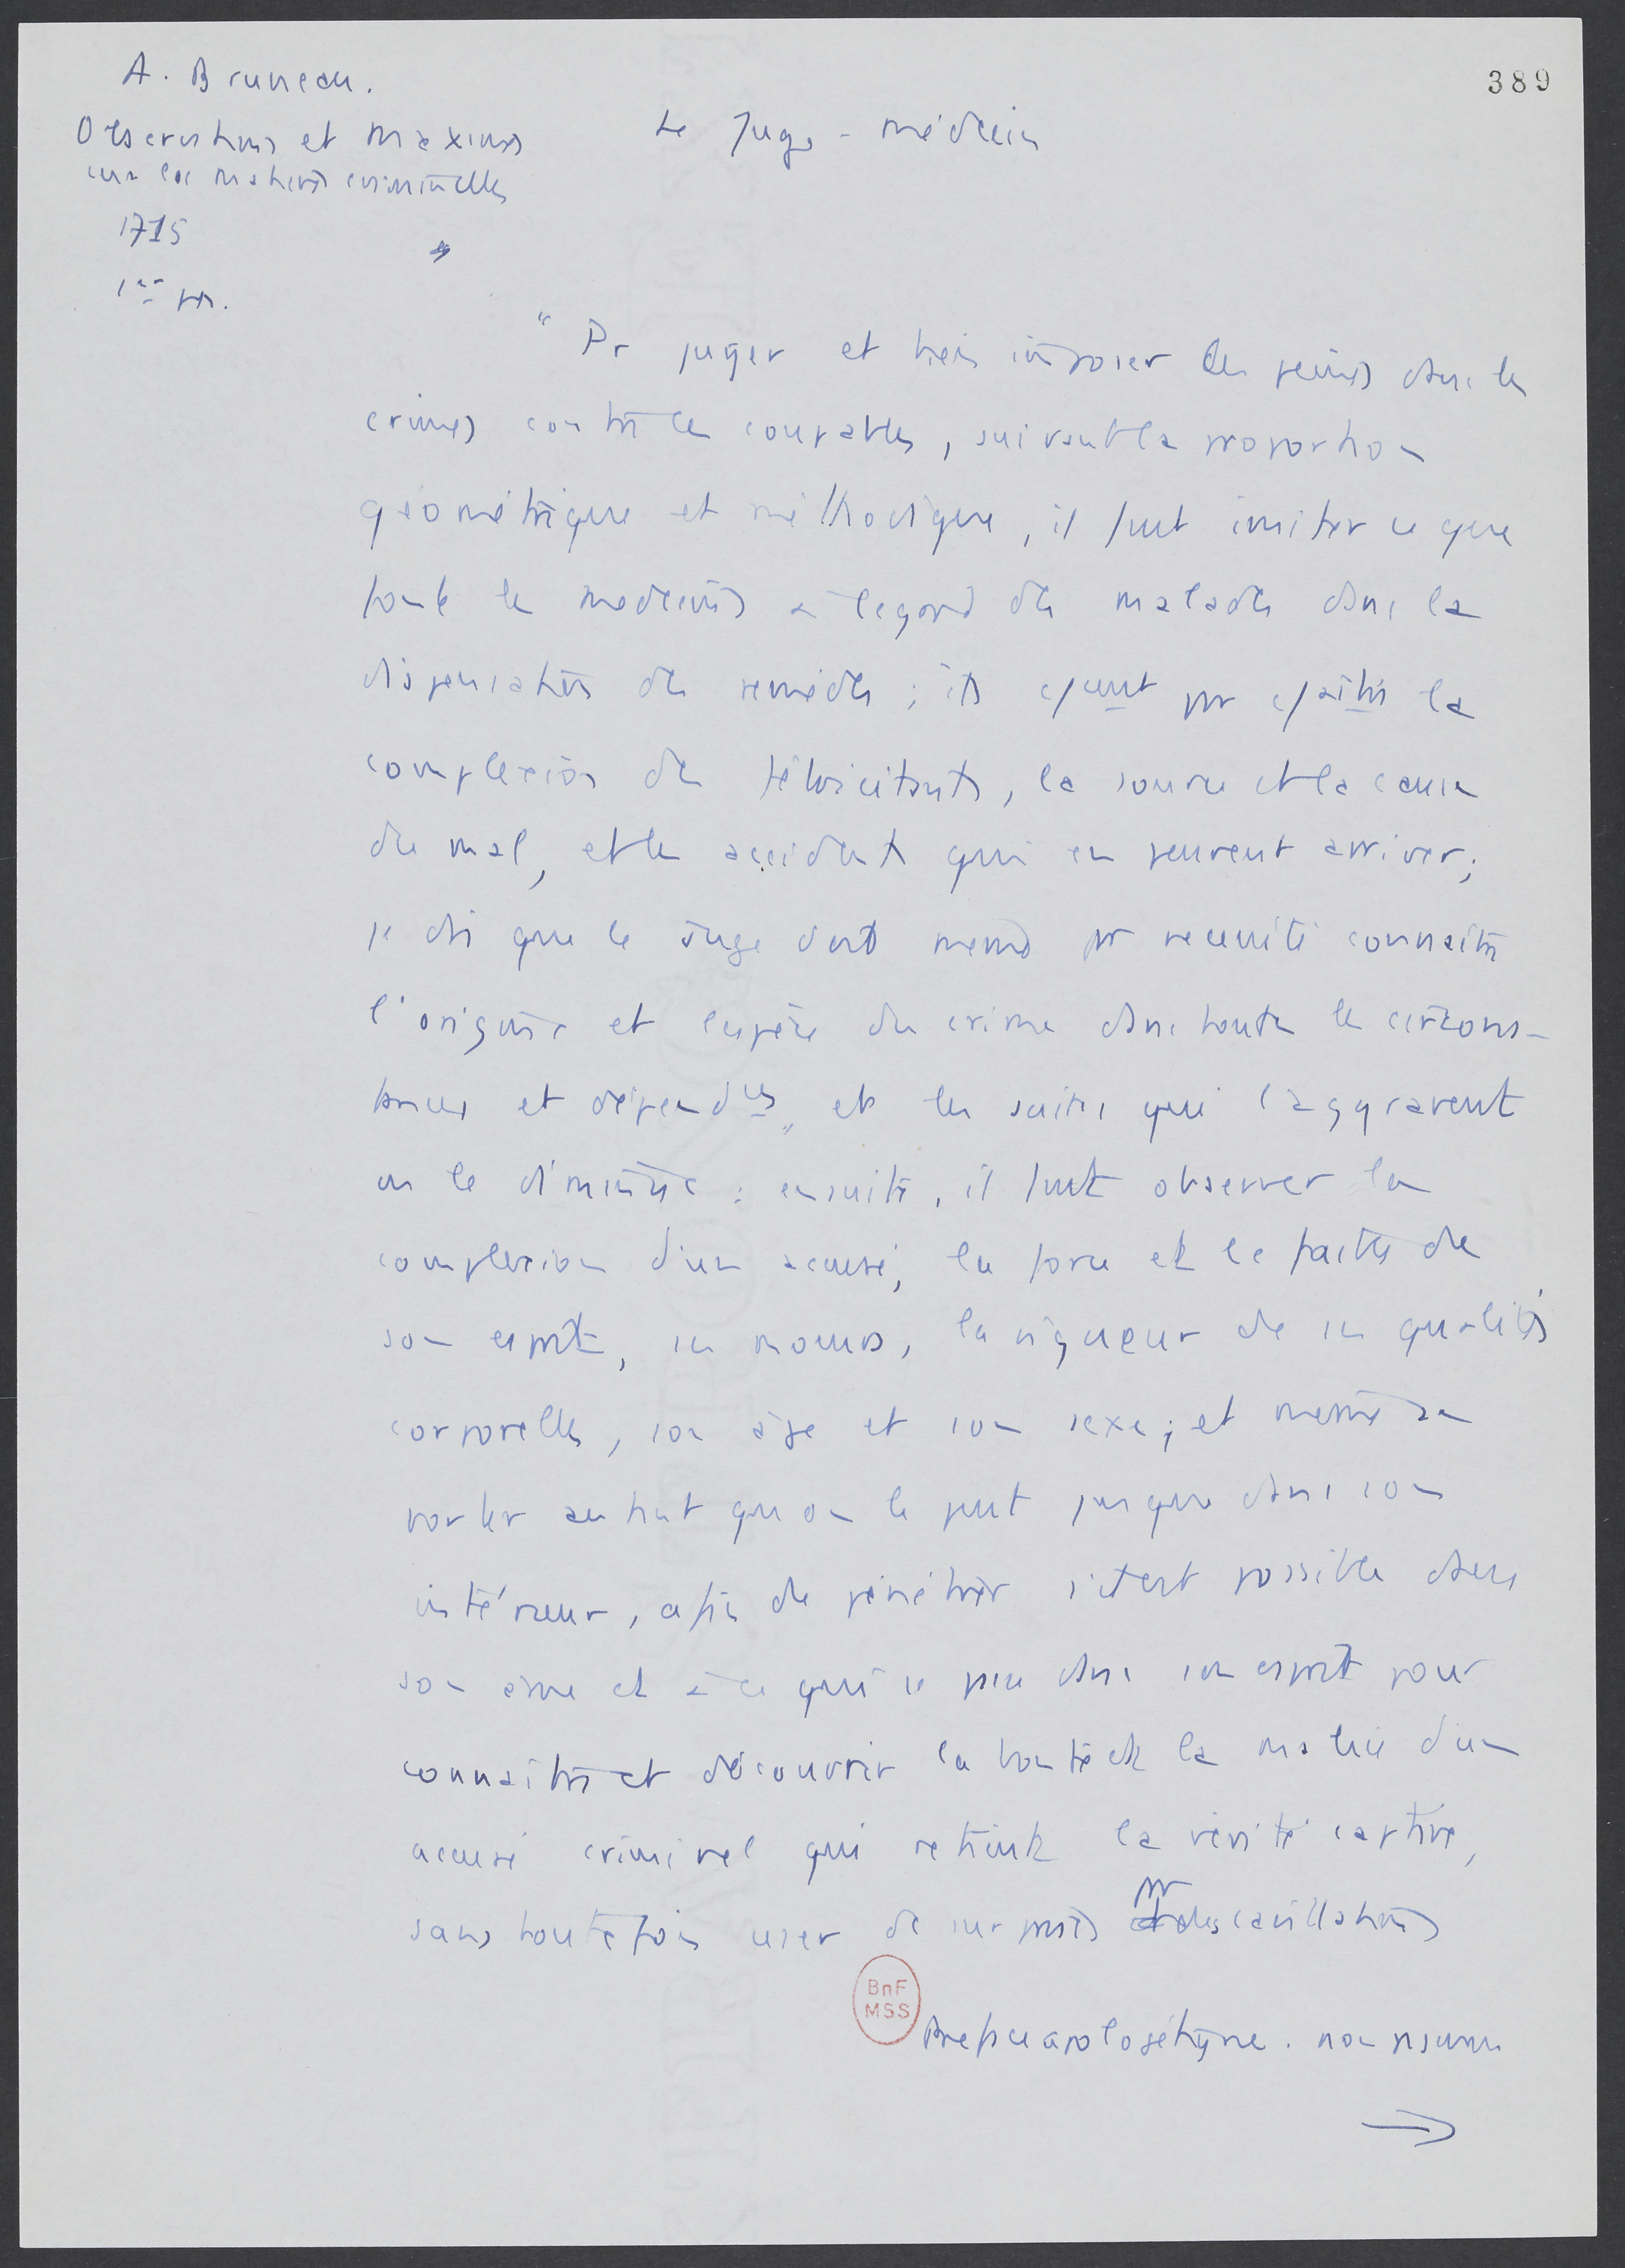 389
A. Bruneau.
Observations et Maximes
sur les matières criminelles
1715
Le Juge-médecin
"Pr juger et bien imposer les peines dans les
crimes contre les coupables, suivant la proportion
géométrique et méthodique, il faut imiter ce que
font les médecins à l'égard des malades dans la
dispensation des remèdes ; ils
la
complexion des fébricitants, la source et la cause
du mal, et les accidents qui en peuvent arriver ;
je dis que le Juge doit même pr nécessité connaître
l'origine et l'espèce du crime dans toutes les circons-
tances et dépendces, et les suites qui l'aggravent
ou le diminue : ensuite, il faut observer la
complexion d'un accusé, la force et le faible de
son esprit, ses moeurs, la vigueur de ses qualités
corporelles, son âge et son sexe ; et même se
porter autant qu'on le peut jusque dans son
intérieur, afin de pénétrer s'il est possible dans
son âme et à ce qui se passe dans son esprit pour
connaître et découvrir la bonté et la malice d'un
accusé criminel qui retient la vérité captive,
sans toutefois user de surprises pr des cavillations
BnF
MSS
Préface apologétique. non